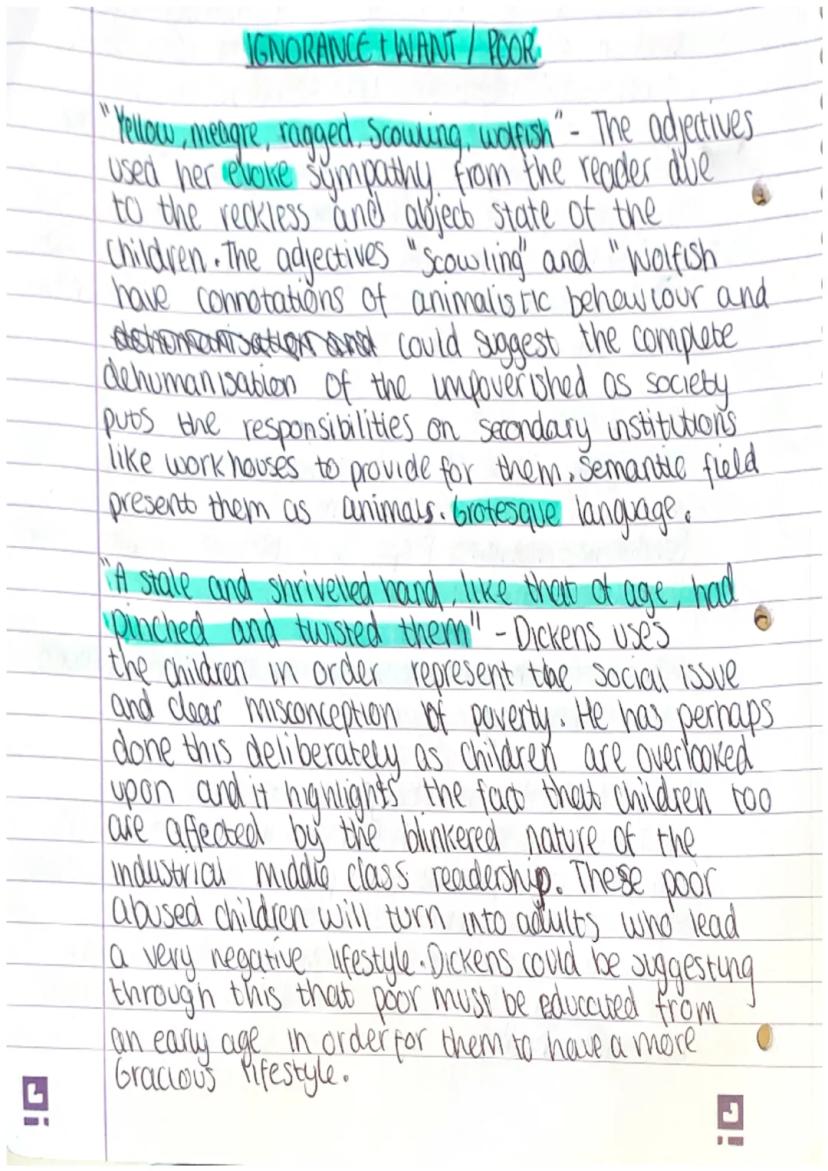 IGNORANCE + WANT / POOR
"Yellow, meagre, ragged, Scowling, wolfish" - The adjectives
used her evoke sympathy from the reader due
to the reckless and abject state of the
children. The adjectives "Scowling" and "Wolfish
have connotations of animalistic behaviour and
dehumanisation and could suggest the complete
dehumanisation of the impoverished as society
puts the responsibilities on secondary institutions
like workhouses to provide for them. Semantic field
present them as animals. Grotesque language.
"A stale and shrivelled hand, like that of age, had
pinched and twisted them" - Dickens uses
the children in order represent the social issue
and clear misconception of poverty. He has perhaps
done this deliberately as children are overlooked
upon and it highlights the fact that children too
are affected by the blinkered nature of the
industrial middle class readership. These poor
abused children will turn into adults who lead
a very negative lifestyle. Dickens could be suggesting
through this that poor must be educated from
an early age in order for them to have a more
Gracious lifestyle.